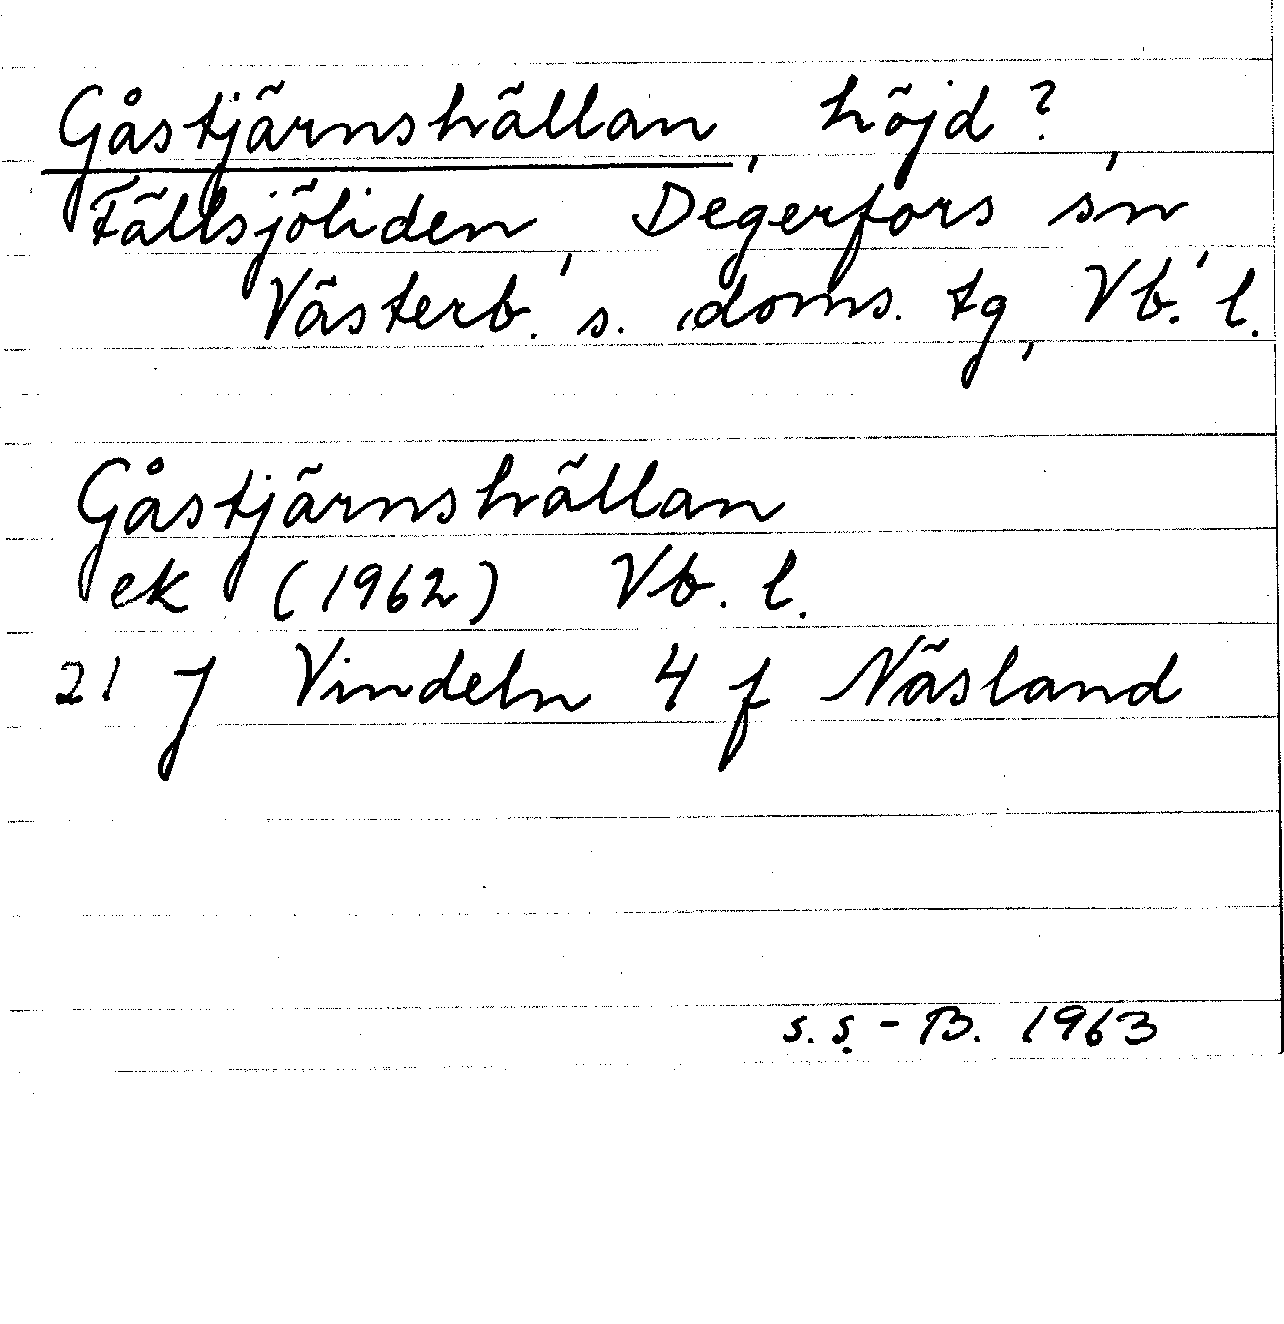 Gåstjärnshällan, höjd?,
Fällsjöliden, Degerfors sn,
Västerb. s. doms. tg, Vb. l.
Gåstjärnshällan
ek (1962) Vb. l.
21 J Vindeln 4 f Näsland
S. S. - B. 1963